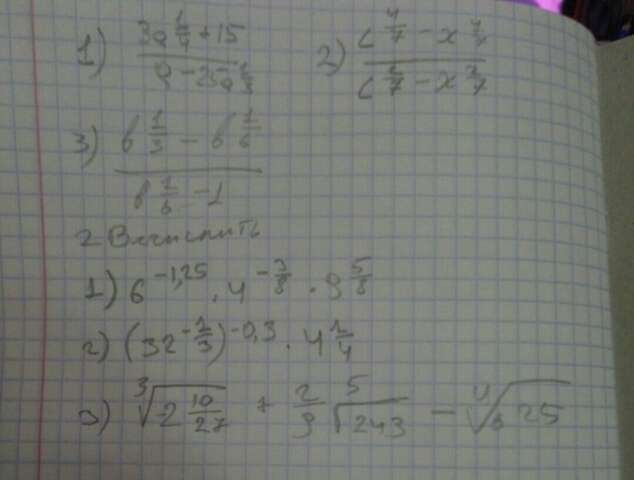 1) (3a^{1/4} + 15) / (a - 25a^{1/2}) 2) (c^{4/7} - x^{4/7}) / (c^{2/7} - x^{2/7})
3) (b^{1/3} - b^{1/6}) / (b^{1/6} - 1)
2 Вычислить
1) 6^{-1,25} · 4^{-3/8} · 9^{5/8}
2) (32^{-1/3})^{-0,3} · 4^{1/4}
3) ∛(2 10/27) + 2/9 ⁵√243 - ⁴√625